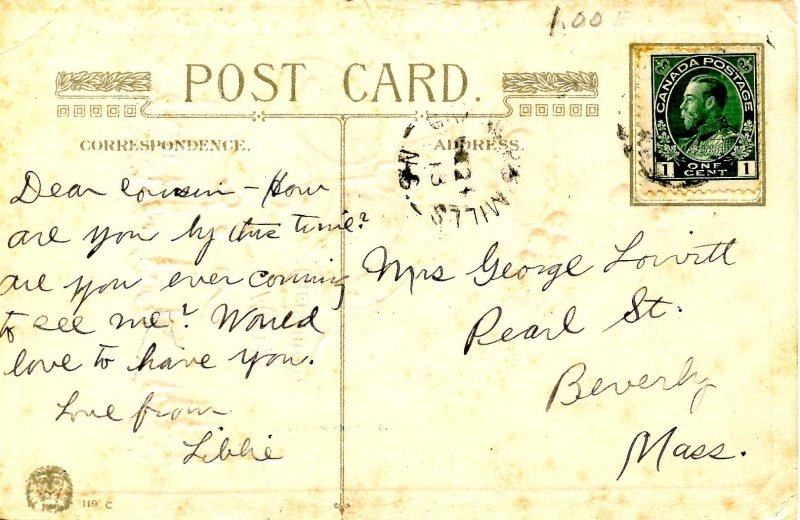 1.00
POST CARD.
CORRESPONDENCE.
ADDRESS.
CANADA POSTAGE
1 ONE CENT 1
MILLS
13
N.S.
Dear Cousin - How
are you by this time?
are you ever coming
to see me? Would
love to have you.
Love from
Libbie
Mrs George Lovitt
Pearl St.
Beverly
Mass.
110 C